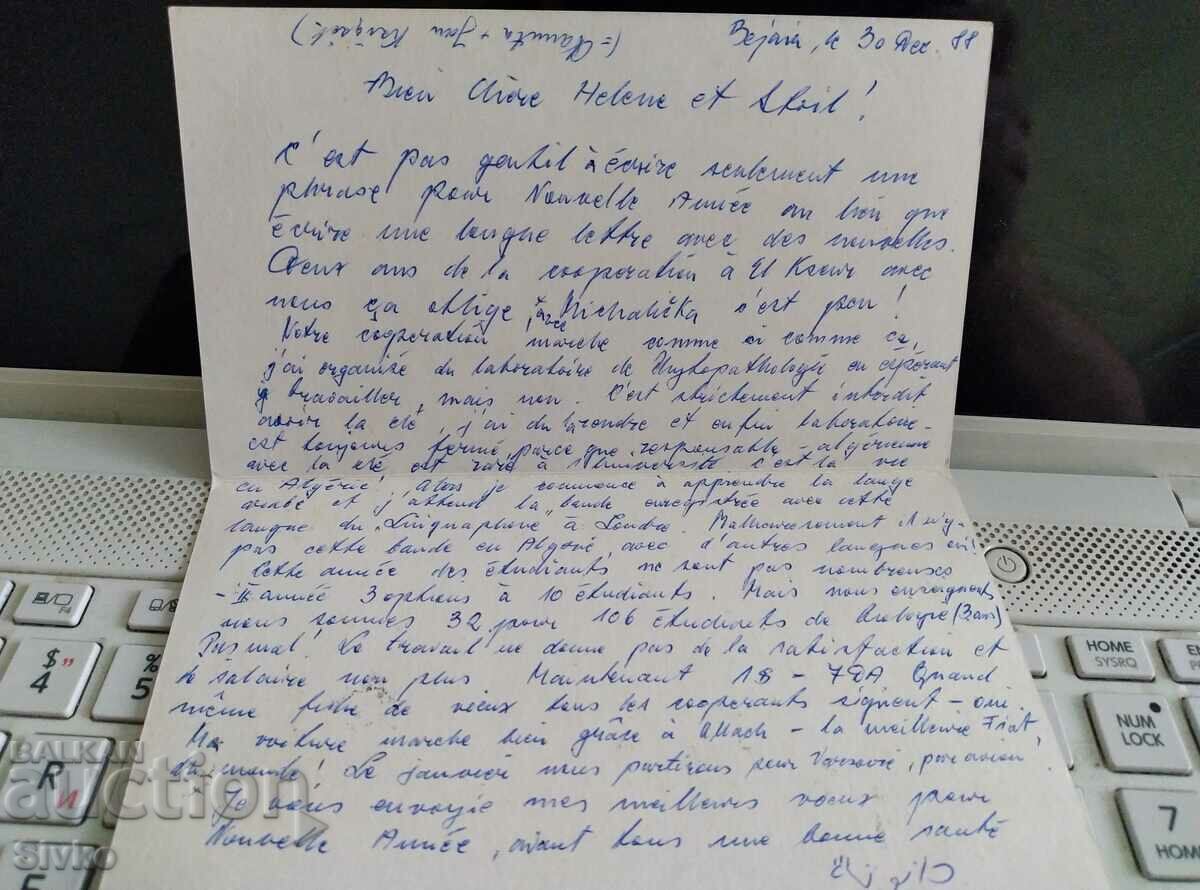 (= Danuta + Jan
Bejaia, le 30 Dec. 88
Bien Chère Helene et
C'est pas gentil à écrire seulement une
phrase pour Nouvelle Année ou bien que
écrire une longue lettre avec des nouvelles.
Deux ans de la cooperation à El Kseur avec
nous ça oblige, à Michalička c'est peu!
Notre cooperation avec marche comme ci comme ça,
j'ai organisé du laboratoire de Phytopathologie en espérant
y travailler, mais non. C'est strictement interdit
avoir la clé, j'ai du rendre et enfin laboratoire
est toujours fermé parce que responsable - algérienne
avec la clé est rare à l'université c'est la vie
en Algérie! Alors je commence à apprendre la langue
arabe et j'attend la "bande enregistrée avec cette
langue du "Linguaphone à Londre. Malheureusement il n'y a
pas cette bande en Algérie, avec d'autres langues oui!
Cette année des étudiants ne sont pas nombreuses
- II année 3 options à 10 étudiants. Mais nous enseignants
nous sommes 32 pour 106 étudients de Biologie (3 ans)
Pas mal! Le travail ne donne pas de la satisfaction et
le salaire non plus. Maintenant 18 - 7DA Quand
même fiche de vœux tous les cooperants signent - oui.
Ma voiture marche bien grâce à Allach - la meilleure Fiat
du monde! Le janvier nous partirons pour Varsovie, par avion.
Je vous envoyie mes meilleures vœux pour
Nouvelle Année, avant tous une bonne santé
F4
$
4
%
5
R
И
HOME
SYSRQ
NUM
LOCK
HOME
7
BALKAN
auction
Sivko